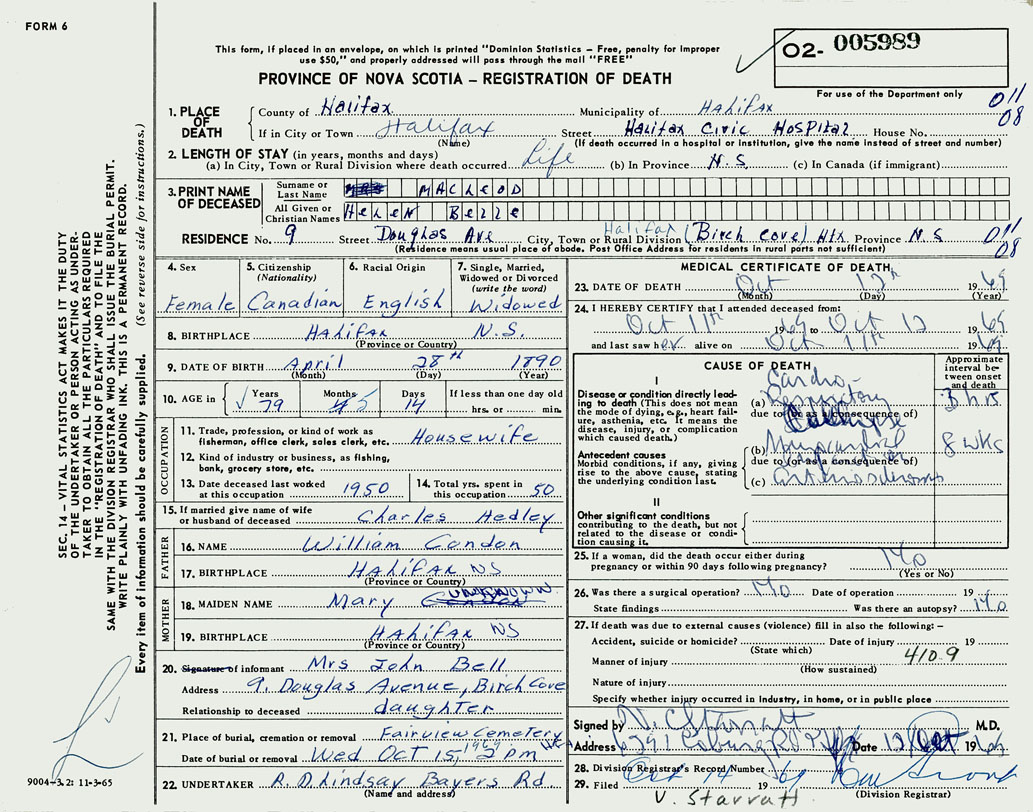 FORM 6
This form, if placed in an envelope, on which is printed "Dominion Statistics – Free, penalty for improper
use $50," and properly addressed will pass through the mail "FREE"
PROVINCE OF NOVA SCOTIA – REGISTRATION OF DEATH
02- 005989
For use of the Department only
011
08
1. PLACE OF DEATH
County of Halifax Municipality of Halifax
If in City or Town Halifax Street Halifax Civic Hospital House No.
(Name) (If death occurred in a hospital or institution, give the name instead of street and number)
2. LENGTH OF STAY (in years, months and days)
(a) In City, Town or Rural Division where death occurred Life (b) In Province N.S. (c) In Canada (if immigrant)
3. PRINT NAME OF DECEASED
Surname or Last Name MACLEOD
All Given or Christian Names HELEN BELLE
RESIDENCE No. 9 Street Douglas Ave City, Town or Rural Division Halifax (Birch Cove) Hfx Province N S
(Residence means usual place of abode. Post Office Address for residents in rural parts not sufficient)
011
08
4. Sex
Female
5. Citizenship (Nationality)
Canadian
6. Racial Origin
English
7. Single, Married, Widowed or Divorced (write the word)
Widowed
8. BIRTHPLACE Halifax N.S.
(Province or Country)
9. DATE OF BIRTH April 28th 1890
(Month) (Day) (Year)
10. AGE in Years 79 Months 5 Days 14 If less than one day old hrs. or min.
OCCUPATION
11. Trade, profession, or kind of work as
fisherman, office clerk, sales clerk, etc. Housewife
12. Kind of industry or business, as fishing,
bank, grocery store, etc.
13. Date deceased last worked
at this occupation 1950
14. Total yrs. spent in
this occupation 50
15. If married give name of wife
or husband of deceased Charles Hedley
FATHER
16. NAME William Condon
17. BIRTHPLACE Halifax NS
(Province or Country)
MOTHER
18. MAIDEN NAME Mary UNKNOWN
19. BIRTHPLACE Halifax NS
(Province or Country)
20. Signature of informant Mrs John Bell
Address 9. Douglas Avenue, Birch Cove
Relationship to deceased daughter
21. Place of burial, cremation or removal Fairview Cemetery
Date of burial or removal Wed Oct 15, 1969 2 pm
22. UNDERTAKER A. D. Lindsay Bayers Rd
(Name and address)
MEDICAL CERTIFICATE OF DEATH
23. DATE OF DEATH Oct 12th 1969
(Month) (Day) (Year)
24. I HEREBY CERTIFY that I attended deceased from:
Oct 11th 1969 to Oct 12 1969
and last saw her alive on Oct 11th 1969
CAUSE OF DEATH
Approximate interval between onset and death
I
Disease or condition directly leading to death (This does not mean
the mode of dying, e.g., heart failure, asthenia, etc. It means the
disease, injury, or complication
which caused death.)
(a) Cardio-Respiratory Collapse 3 hrs
due to (or as a consequence of)
Antecedent causes
Morbid conditions, if any, giving
rise to the above cause, stating
the underlying condition last.
(b) Myocardial 8 wks
due to (or as a consequence of)
(c) Arteriosclerosis
II
Other significant conditions
contributing to the death, but not
related to the disease or condition causing it.
25. If a woman, did the death occur either during
pregnancy or within 90 days following pregnancy? No
(Yes or No)
26. Was there a surgical operation? No Date of operation 19
State findings Was there an autopsy? No
27. If death was due to external causes (violence) fill in also the following: –
Accident, suicide or homicide? Date of injury 19
(State which)
Manner of injury 410.9
(How sustained)
Nature of injury
Specify whether injury occurred in Industry, in home, or in public place
Signed by V. Starratt M.D.
Address 6291 Coburg Rd Hfx Date 12 Oct 1969
28. Division Registrar's Record Number
29. Filed Oct 14 1969
(Division Registrar)
V. Starratt
SEC. 14 – VITAL STATISTICS ACT MAKES IT THE DUTY
OF THE UNDERTAKER OR PERSON ACTING AS UNDERTAKER TO OBTAIN ALL THE PARTICULARS REQUIRED
IN THE "REGISTRATION OF DEATH" AND TO FILE THE
SAME WITH THE DIVISION REGISTRAR WHO SHALL ISSUE THE BURIAL PERMIT.
WRITE PLAINLY WITH UNFADING INK. THIS IS A PERMANENT RECORD.
Every item of information should be carefully supplied. (See reverse side for instructions.)
9004-3.2: 11-3-65